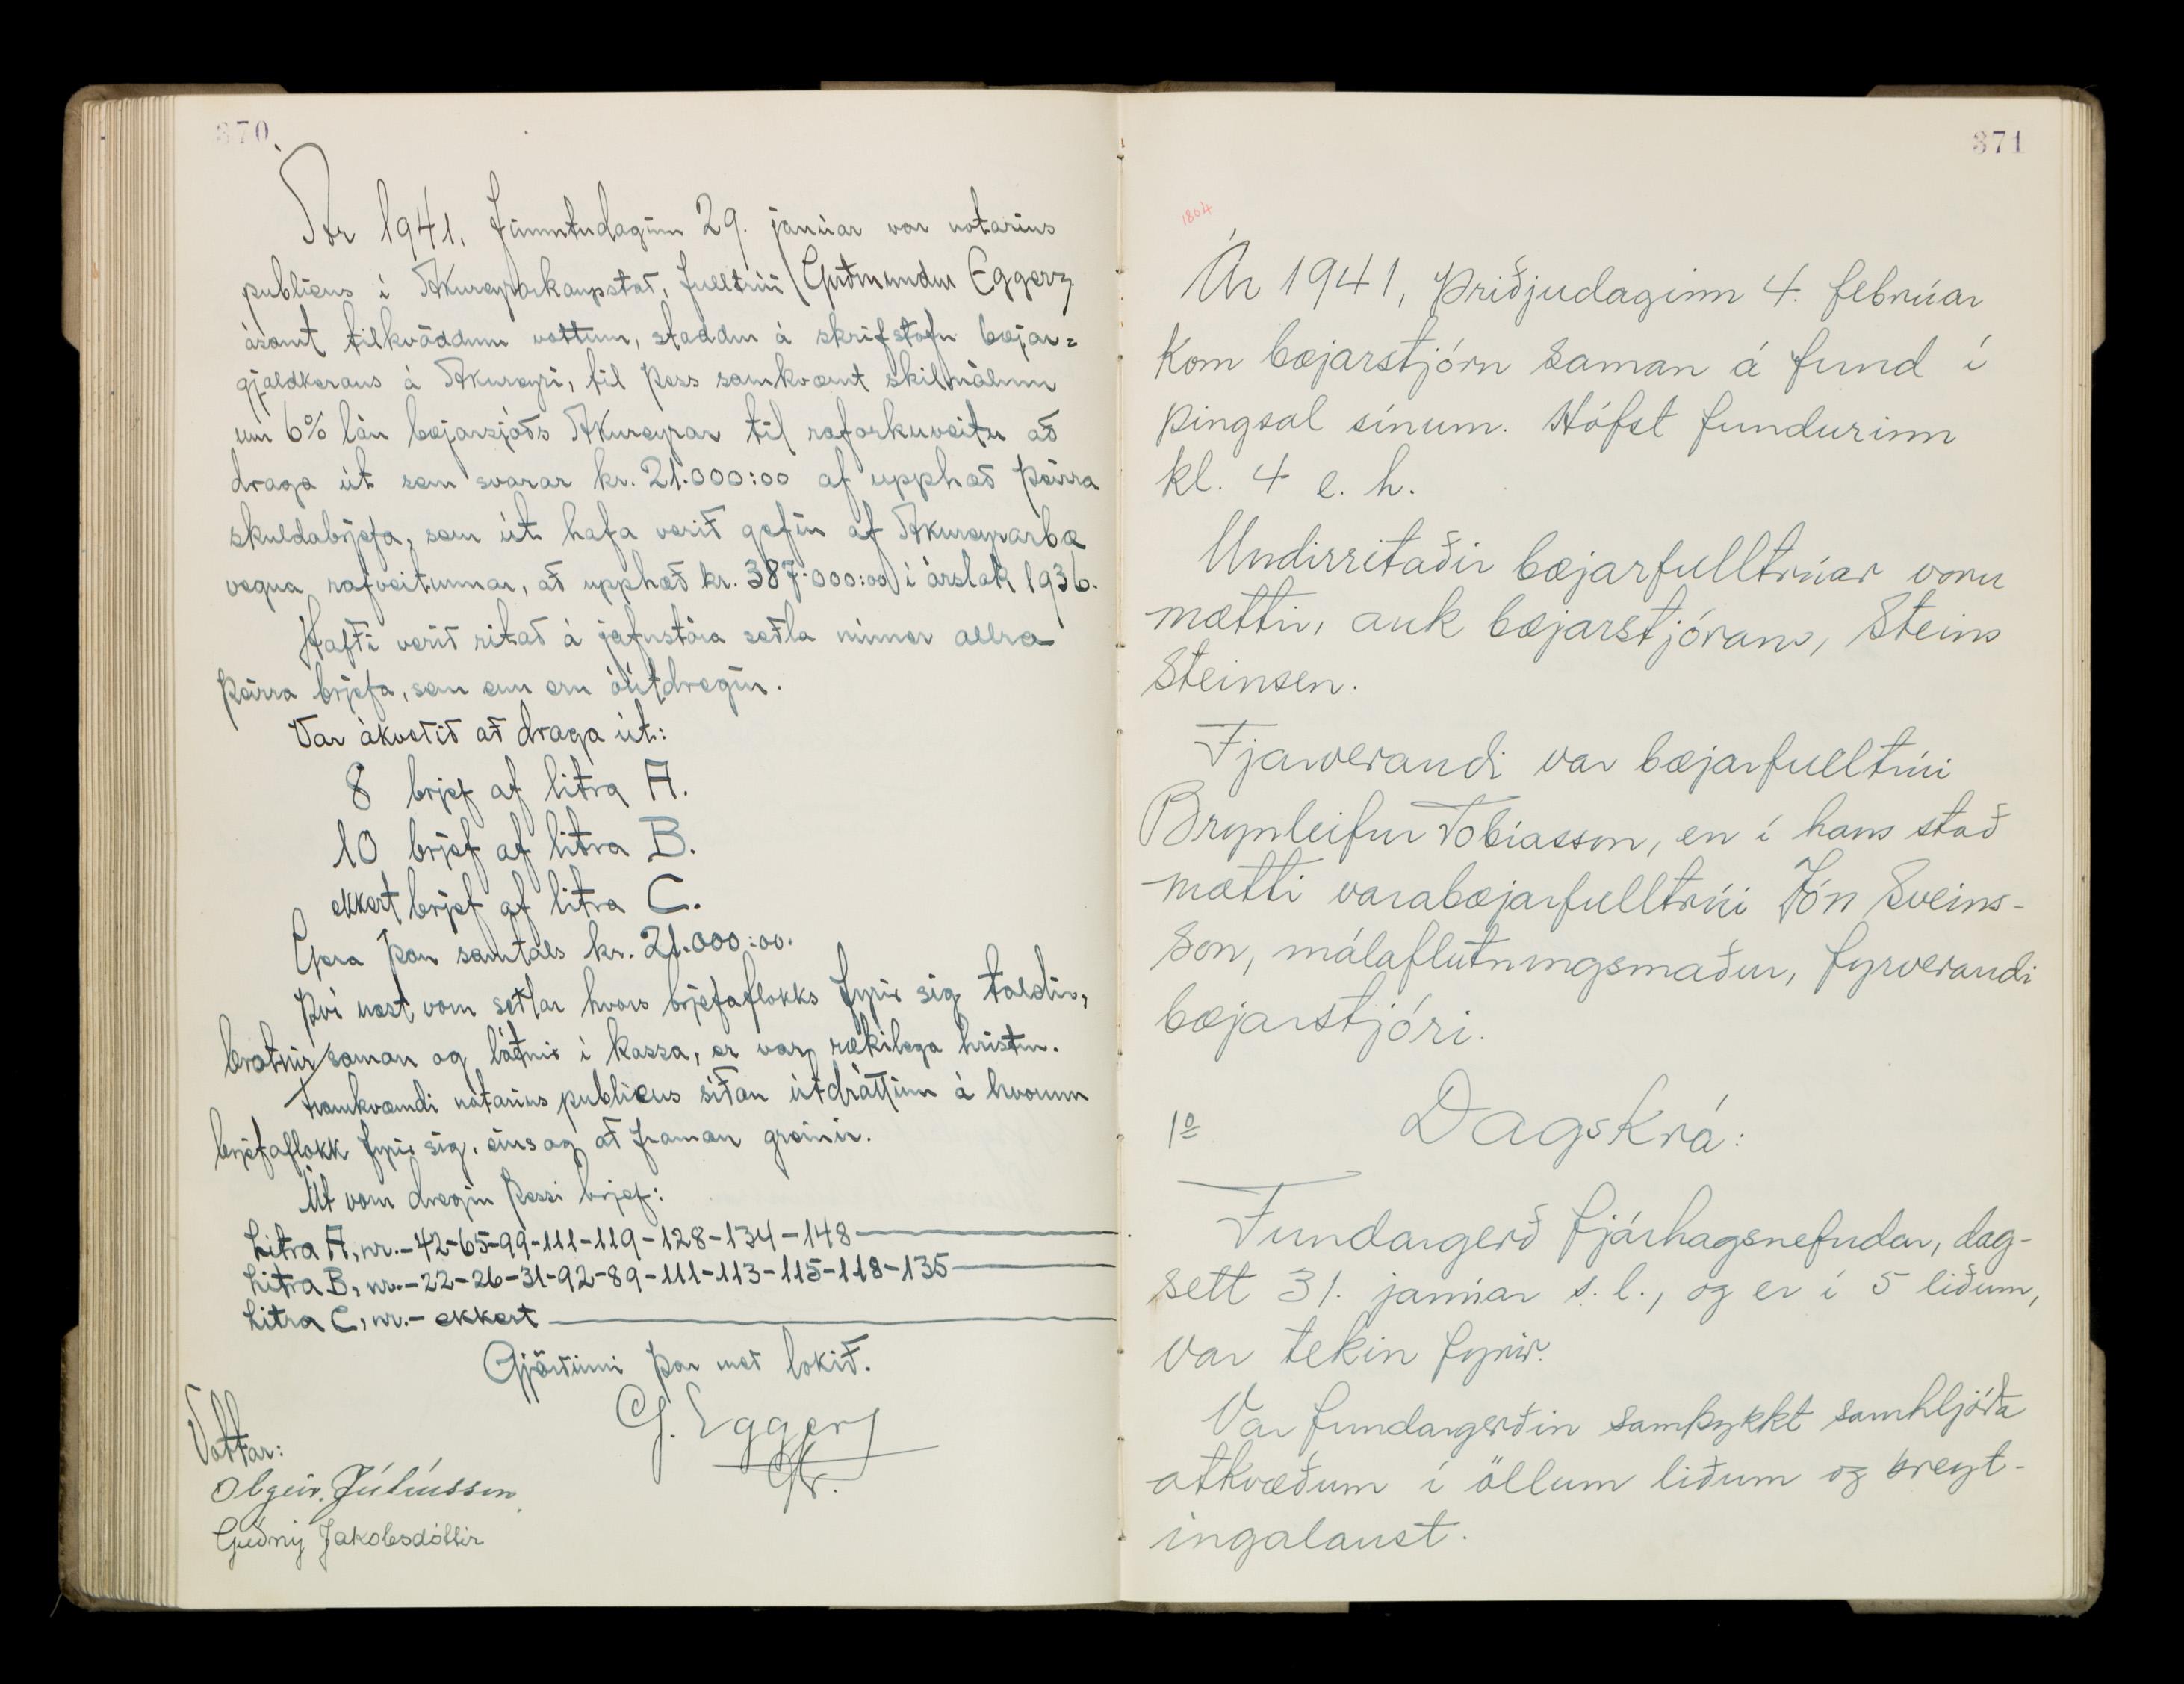 370
Ár 1941, fimmtudaginn 29. janúar var notarius
publicus í Akureyrarkaupstað, fulltrúi Guðmundur Eggerz
ásamt tilkvöddum vottum, staddur á skrifstofu bæjar=
gjaldkerans á Akureyri, til þess samkvæmt skilmálum
um 6% lán bæjarsjóðs Akureyrar til raforkuveitu að
draga út sem svarar kr. 21.000:00 af upphæð þeirra
skuldabrjefa, sem út hafa verið gefin af Akureyrarbæ
vegna rafveitunnar, að upphæð kr. 387.000:00 í árslok 1936.
Hafði verið ritað á jafnstóra seðla númer allra
þeirra brjefa, sem enn eru óútdregin.
Var ákveðið að draga út:
8 brjef af litra A.
10 brjef af litra B.
ekkert brjef af litra C.
Gera þau samtals kr. 21.000:00.
Því næst voru seðlar hvers brjefaflokks fyrir sig taldir,
brotnir saman og látnir í kassa, er var rækilega hristur.
Framkvæmdi notarius publicus síðan útdráttinn á hverjum
brjefaflokk fyrir sig, eins og að framan greinir.
Út voru dregin þessi brjef:
Litra A, nr. - 42-65-99-111-119-128-134-148
Litra B, nr. - 22-26-31-92-89-111-113-115-118-135
Litra C, nr. - ekkert
Gjörðinni þar með lokið.
G. Eggerz
Vottar:
Olgeir Júlíusson
Guðný Jakobsdóttir
371
1804
Ár 1941, þriðjudaginn 4. febrúar
kom bæjarstjórn saman á fund í
þingsal sínum. Hófst fundurinn
kl. 4 e. h.
Undirritaðir bæjarfulltrúar voru
mættir, auk bæjarstjórans, Steins
Steinsen.
Fjarverandi var bæjarfulltrúi
Brynleifur Tobíasson, en í hans stað
mætti varabæjarfulltrúi Jón Sveins-
son, málaflutningsmaður, fyrverandi
bæjarstjóri.
1º Dagskrá:
Fundargerð fjárhagsnefndar, dag-
sett 31. janúar s. l., og er í 5 liðum,
var tekin fyrir.
Var fundargerðin samþykkt samhljóða
atkvæðum í öllum liðum og breyt-
ingalaust.